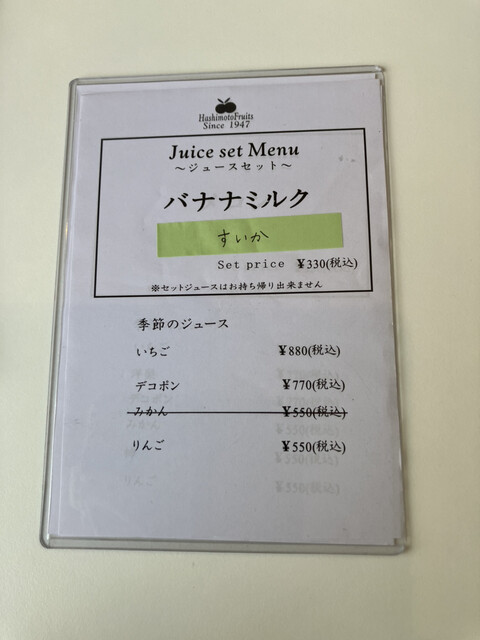 HashimotoFruits
Since 1947
Juice set Menu
～ジュースセット～
バナナミルク
すいか
Set price ¥330(税込)
※セットジュースはお持ち帰り出来ません
季節のジュース
いちご ¥880(税込)
デコポン ¥770(税込)
みかん ¥550(税込)
りんご ¥550(税込)